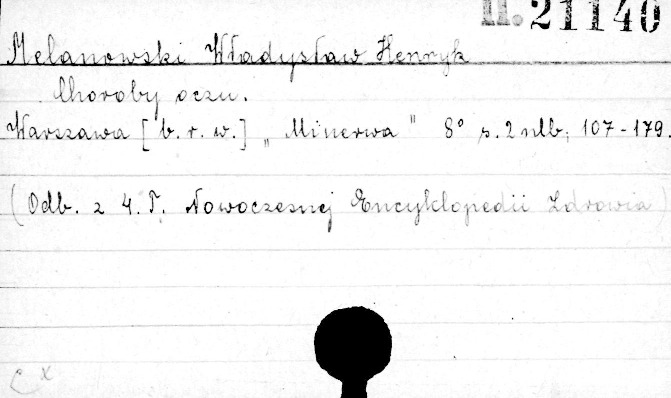 II. 21140
Melanowski Władysław Henryk
Choroby oczu.
Warszawa [b. r. w.] „Minerwa" 8° s. 2 nlb, 107-179.
(Odb. z 4. T. Nowoczesnej Encyklopedii Zdrowia)